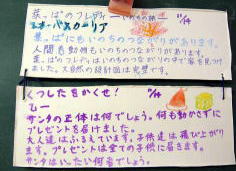 葉っぱのフレディ ーいのちの旅ー 11/14
レオ・バスカーリア
葉っぱにもいのちのつながりがあります。
人間も動物もいのちのつながりがあります。
葉っぱのフレディはいのちのつながりの中で家を見つけ
ました。大自然の設計図は完璧です。
くつしたをかくせ!
11/14
サンタの正体は何でしょう。何も動かずに
プレゼントを届けました。
大人達はふるえています。子供達は飛び上がり
ます。プレゼントは全ての子供に届きます。
サンタはいったい何者でしょう。